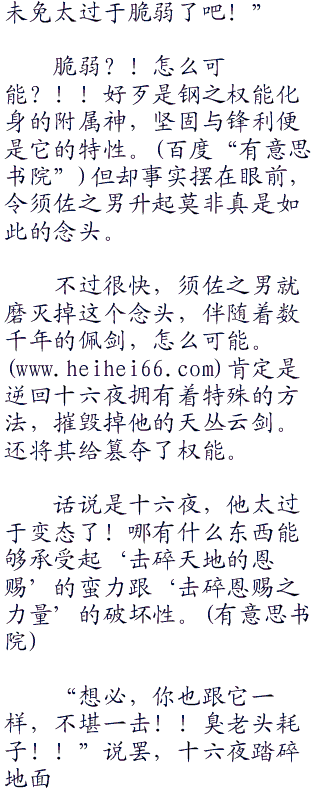 未免太过于脆弱了吧！”
脆弱？！怎么可
能？！！好歹是钢之权能化
身的附属神，坚固与锋利便
是它的特性。(百度“有意思
书院”)但却事实摆在眼前，
令须佐之男升起莫非真是如
此的念头。
不过很快，须佐之男就
磨灭掉这个念头，伴随着数
千年的佩剑，怎么可能。
(www.heihei66.com)肯定是
逆回十六夜拥有着特殊的方
法，摧毁掉他的天丛云剑。
还将其给篡夺了权能。
话说是十六夜，他太过
于变态了！哪有什么东西能
够承受起‘击碎天地的恩
赐’的蛮力跟‘击碎恩赐之
力量’的破坏性。(有意思书
院)
“想必，你也跟它一
样，不堪一击！！臭老头耗
子！！”说罢，十六夜踏碎
地面